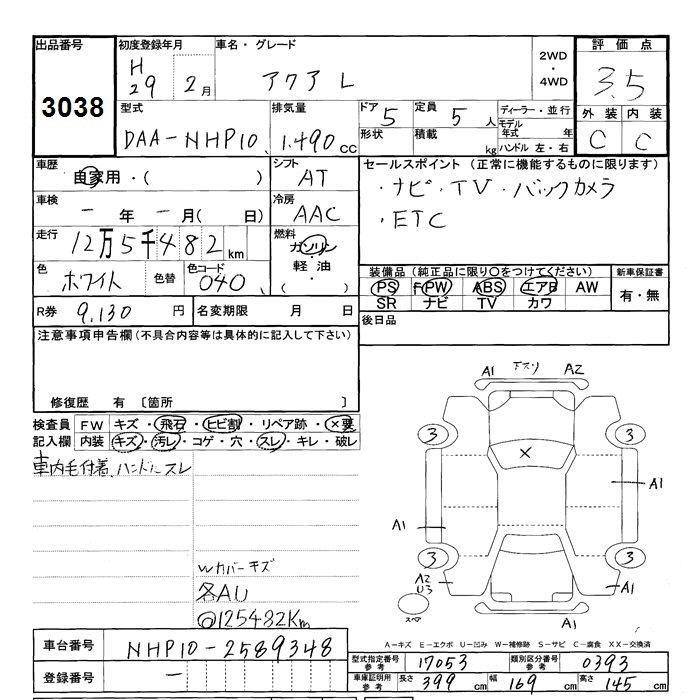 出品番号 初度登録年月 車名・グレード 2WD・4WD 評価点
3038 H29 2月 アクア L 3.5
外装 内装
C C
型式 排気量 ドア 5 定員 5人 ディーラー・並行
DAA-NHP10 1.490cc 形状 積載 kg モデル年式 年
ハンドル 左・右
車歴 自家用・( ) シフト AT セールスポイント(正常に機能するものに限ります)
・ナビ・TV・バックカメラ
・ETC
車検 ー年ー月(ー日) 冷房 AAC
走行 12万5千482km 燃料 ガソリン・軽油・( )
色 ホワイト 色替 色コード 040
装備品(純正品に限り○をつけてください) 新車保証書
PS PW ABS エアB AW 有・無
SR ナビ TV カワ
R券 9,130円 名変期限 月 日 後日品
注意事項申告欄(不具合内容等は具体的に記入して下さい)
修復歴 有 〔箇所 〕
検査員 FW キズ・飛石・ヒビ割・リペア跡・×要
記入欄 内装 キズ・汚レ・コゲ・穴・スレ・キレ・破レ
車内毛付着、ハンドルスレ
Wカバーキズ
各AU
◎125482Km
A1 下スリ A2
3 3
×
A1
A1
3 3
A2
U3 A1
スペア A1
A-キズ E-エクボ U-凹み W-補修跡 S-サビ C-腐食 XX-交換済
車台番号 NHP10-2589348
登録番号 ー
型式指定番号 参考 17053 類別区分番号 参考 0393
車庫証明用 参考 長さ 399cm 幅 169cm 高さ 145cm